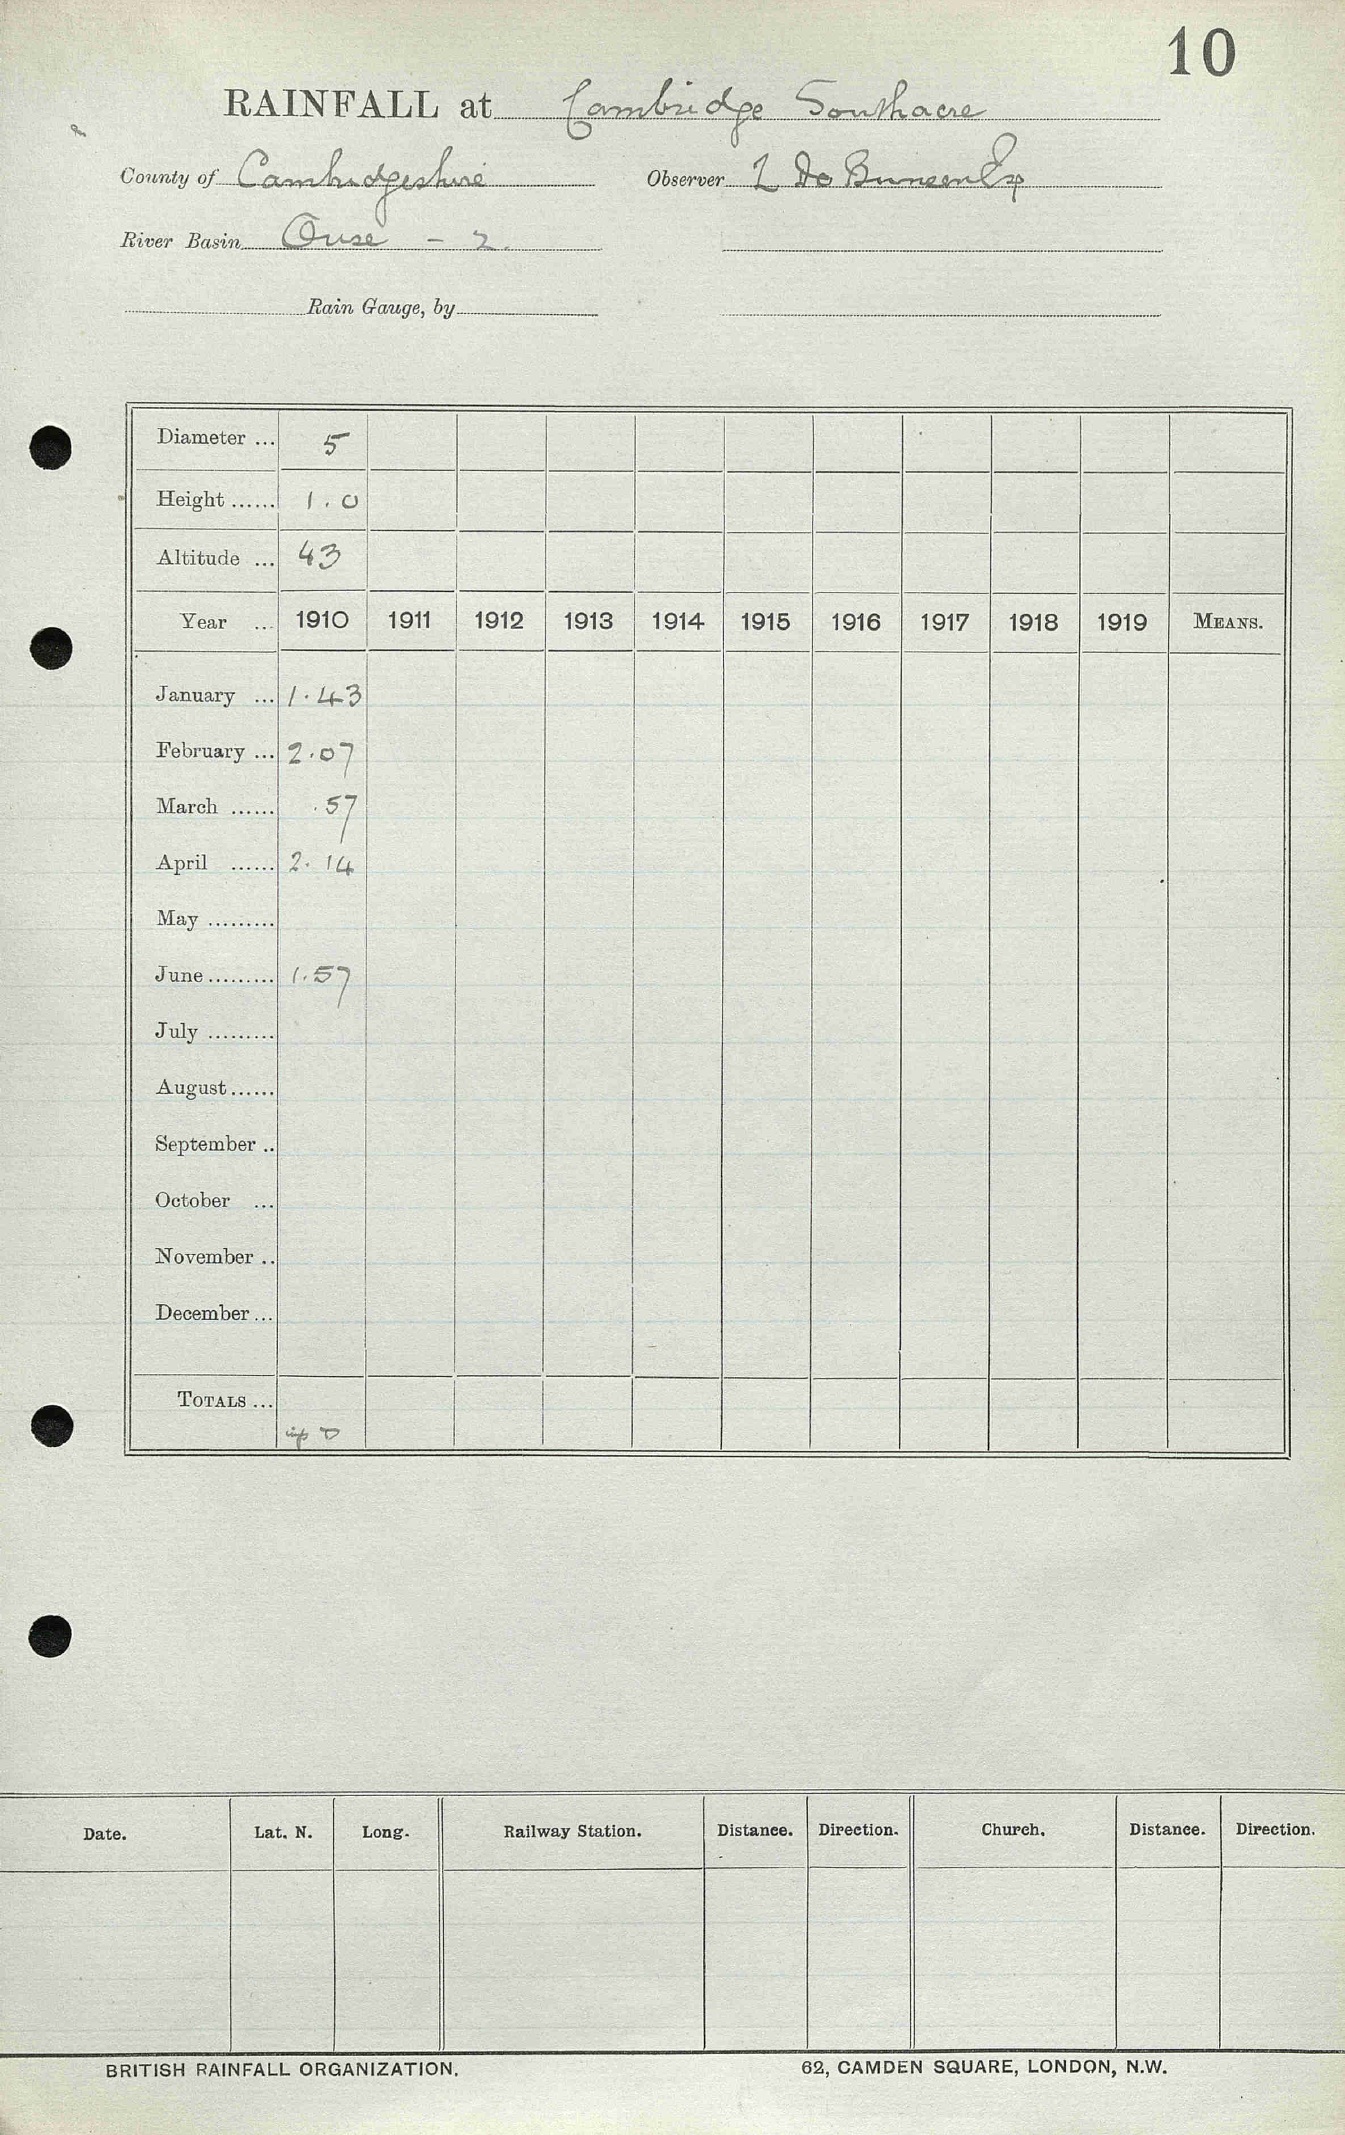 10
RAINFALL at Cambridge Southacre
County of Cambridgeshire Observer L De Bunsen Esq
River Basin Ouse - 2.
Rain Gauge, by
Diameter ... 5
Height ...... 1.0
Altitude ... 43
Year ... 1910 1911 1912 1913 1914 1915 1916 1917 1918 1919 MEANS.
January ... 1.43
February ... 2.07
March ...... .57
April ...... 2.14
May .........
June ......... 1.57
July .........
August ......
September ..
October ...
November ..
December ...
TOTALS ...
Date. Lat. N. Long. Railway Station. Distance. Direction. Church. Distance. Direction.
BRITISH RAINFALL ORGANIZATION. 62, CAMDEN SQUARE, LONDON, N.W.